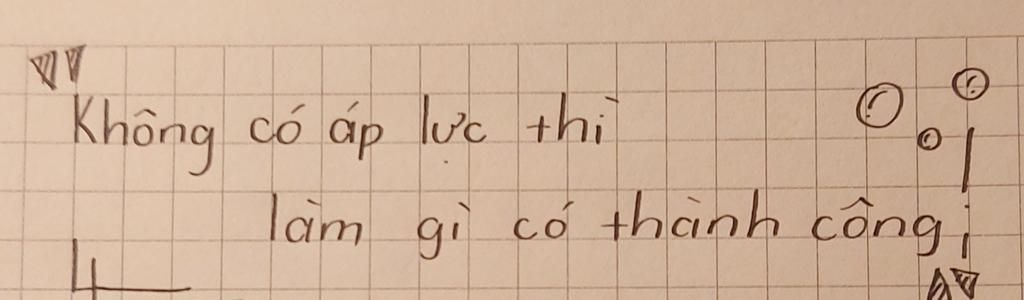 "Không có áp lực thì
làm gì có thành công"